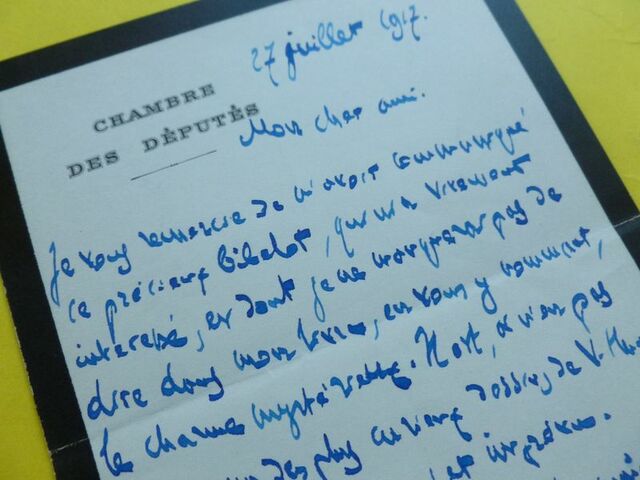 27 juillet 1917.
CHAMBRE
DES DÉPUTÉS
Mon cher ami.
Je vous remercie de m'avoir communiqué
ce précieux bibelot, qui m'a vivement
intéressé, et dont je ne manquerai pas de
dire dans mon livre, en vous y nommant,
le charme mystérieux. N'est, ce n'est pas
un des plus curieux dessins de V. Hu
est imprévu.